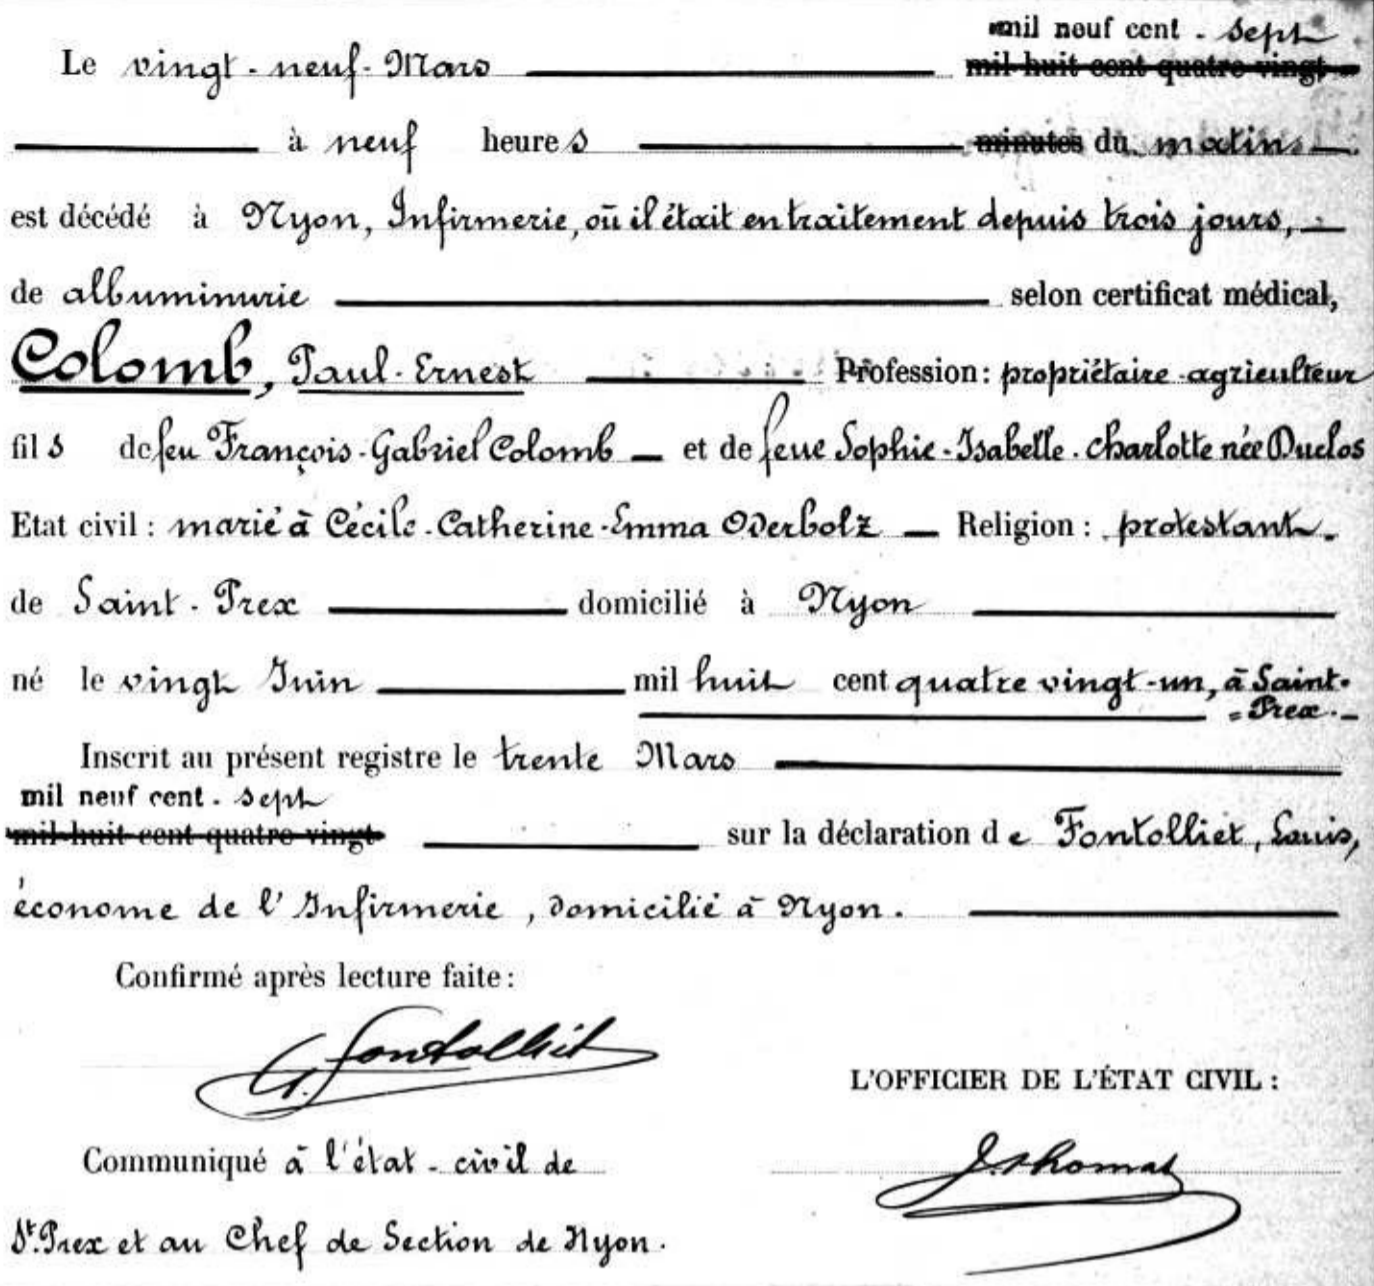 mil neuf cent - sept
Le vingt-neuf-Mars mil huit cent quatre vingt
à neuf heures minutes du matin
est décédé à Nyon, Infirmerie, où il était en traitement depuis trois jours,
de albuminurie selon certificat médical,
Colomb, Paul-Ernest Profession: propriétaire-agriculteur
fils de feu François-Gabriel Colomb et de feue Sophie-Isabelle-Charlotte née Duclos
Etat civil : marié à Cécile-Catherine-Emma Oderbolz Religion : protestant.
de Saint-Prex domicilié à Nyon
né le vingt Juin mil huit cent quatre vingt-un, à Saint-
=Prex.
Inscrit au présent registre le trente Mars
mil neuf cent - sept
mil huit cent quatre vingt sur la déclaration de Fontolliet, Louis,
économe de l'Infirmerie, domicilié à Nyon.
Confirmé après lecture faite :
Fontolliet
L'OFFICIER DE L'ÉTAT CIVIL :
Communiqué à l'état-civil de
J. Thomas
St. Prex et au Chef de Section de Nyon.